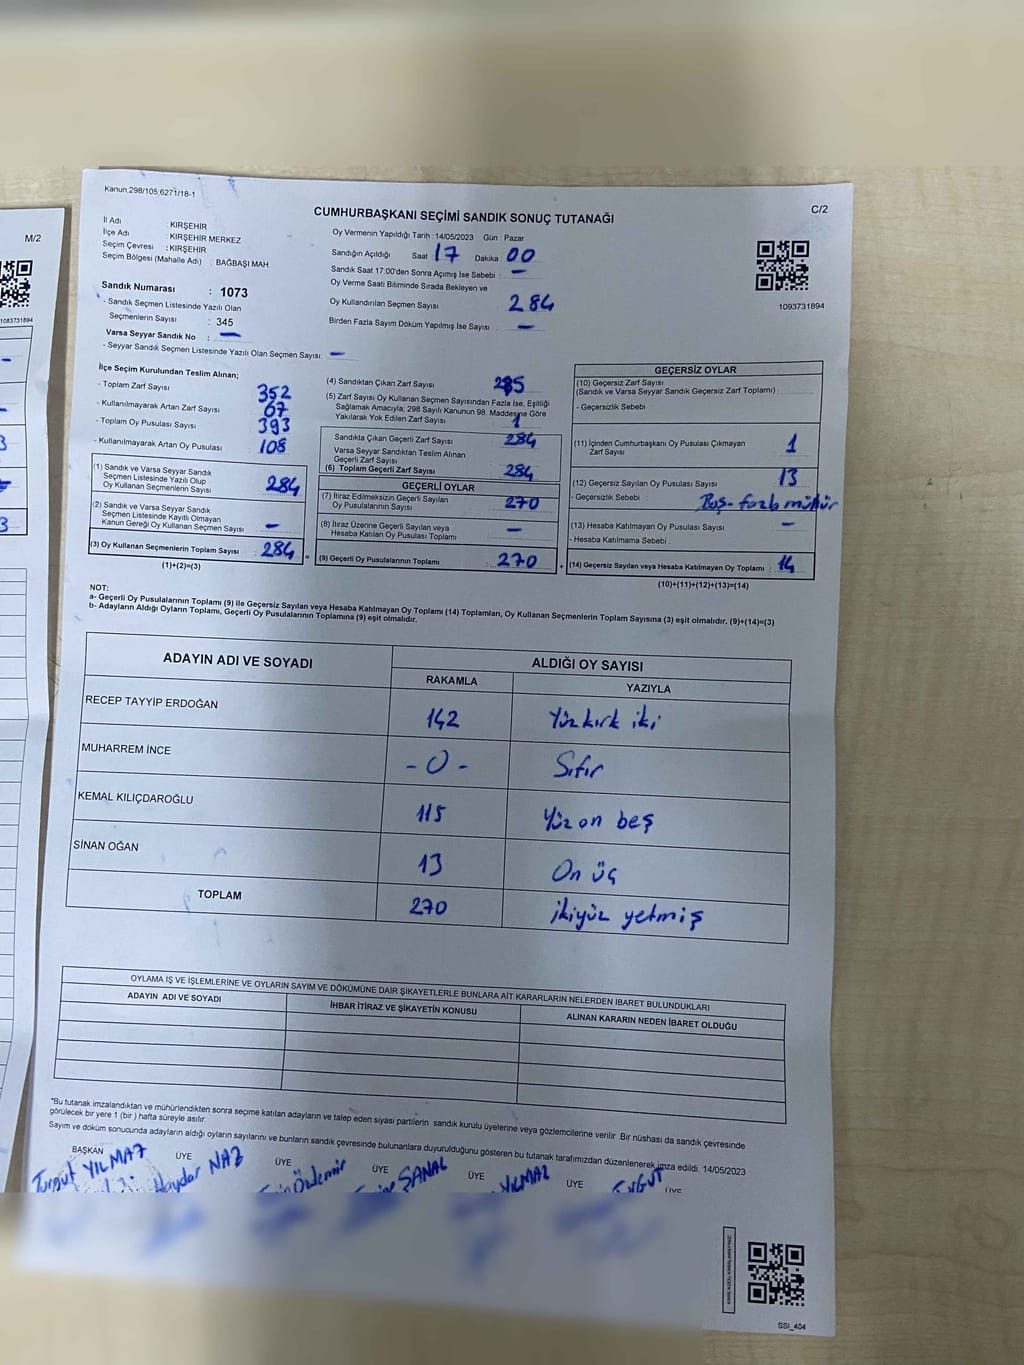 Kanun,298/105,6271/18-1
C/2
CUMHURBAŞKANI SEÇİMİ SANDIK SONUÇ TUTANAĞI
M/2
İl Adı KIRŞEHİR
İlçe Adı : KIRŞEHİR MERKEZ
Seçim Çevresi : KIRŞEHİR
Seçim Bölgesi (Mahalle Adı) : BAĞBAŞI MAH
Sandık Numarası : 1073
- Sandık Seçmen Listesinde Yazılı Olan
Seçmenlerin Sayısı : 345
Varsa Seyyar Sandık No : -
- Seyyar Sandık Seçmen Listesinde Yazılı Olan Seçmen Sayısı: -
Oy Vermenin Yapıldığı Tarih : 14/05/2023 Gün : Pazar
Sandığın Açıldığı Saat 17 Dakika : 00
Sandık Saat 17:00'den Sonra Açımış İse Sebebi : -
Oy Verme Saati Bitiminde Sırada Bekleyen ve
Oy Kullandırılan Seçmen Sayısı 284
Birden Fazla Sayım Döküm Yapılmış İse Sayısı : -
1093731894
1083731894
İlçe Seçim Kurulundan Teslim Alınan;
- Toplam Zarf Sayısı 352
- Kullanılmayarak Artan Zarf Sayısı 67
- Toplam Oy Pusulası Sayısı 393
- Kullanılmayarak Artan Oy Pusulası 108
(1) Sandık ve Varsa Seyyar Sandık
Seçmen Listesinde Yazılı Olup
Oy Kullanan Seçmenlerin Sayısı 284
(2) Sandık ve Varsa Seyyar Sandık
Seçmen Listesinde Kayıtlı Olmayan
Kanun Gereği Oy Kullanan Seçmen Sayısı -
(3) Oy Kullanan Seçmenlerin Toplam Sayısı 284
(1)+(2)=(3)
(4) Sandıktan Çıkan Zarf Sayısı 285
(5) Zarf Sayısı Oy Kullanan Seçmen Sayısından Fazla İse, Eşitliği
Sağlamak Amacıyla; 298 Sayılı Kanunun 98. Maddesine Göre
Yakılarak Yok Edilen Zarf Sayısı 1
Sandıkta Çıkan Geçerli Zarf Sayısı 284
Varsa Seyyar Sandıktan Teslim Alınan
Geçerli Zarf Sayısı
(6) Toplam Geçerli Zarf Sayısı 284
GEÇERLİ OYLAR
(7) İtiraz Edilmeksizin Geçerli Sayılan
Oy Pusulalarının Sayısı 270
(8) İtiraz Üzerine Geçerli Sayılan veya
Hesaba Katılan Oy Pusulası Toplamı -
(9) Geçerli Oy Pusulalarının Toplamı : 270
GEÇERSİZ OYLAR
(10) Geçersiz Zarf Sayısı
(Sandık ve Varsa Seyyar Sandık Geçersiz Zarf Toplamı)
- Geçersizlik Sebebi
(11) İçinden Cumhurbaşkanı Oy Pusulası Çıkmayan
Zarf Sayısı 1
(12) Geçersiz Sayılan Oy Pusulası Sayısı 13
- Geçersizlik Sebebi : Boş- fazla mühür
(13) Hesaba Katılmayan Oy Pusulası Sayısı -
- Hesaba Katılmama Sebebi :
(14) Geçersiz Sayılan veya Hesaba Katılmayan Oy Toplamı : 14
(10)+(11)+(12)+(13)=(14)
NOT:
a- Geçerli Oy Pusulalarının Toplamı (9) ile Geçersiz Sayılan veya Hesaba Katılmayan Oy Toplamı (14) Toplamları, Oy Kullanan Seçmenlerin Toplam Sayısına (3) eşit olmalıdır. (9)+(14)=(3)
b- Adayların Aldığı Oyların Toplamı, Geçerli Oy Pusulalarının Toplamına (9) eşit olmalıdır.
ADAYIN ADI VE SOYADI
ALDIĞI OY SAYISI
RAKAMLA YAZIYLA
RECEP TAYYİP ERDOĞAN 142 Yüz kırk iki
MUHARREM İNCE - 0 - Sıfır
KEMAL KILIÇDAROĞLU 115 Yüz on beş
SİNAN OĞAN 13 On üç
TOPLAM 270 ikiyüz yetmiş
OYLAMA İŞ VE İŞLEMLERİNE VE OYLARIN SAYIM VE DÖKÜMÜNE DAİR ŞİKAYETLERLE BUNLARA AİT KARARLARIN NELERDEN İBARET BULUNDUKLARI
ADAYIN ADI VE SOYADI İHBAR İTİRAZ VE ŞİKAYETİN KONUSU ALINAN KARARIN NEDEN İBARET OLDUĞU
*Bu tutanak imzalandıktan ve mühürlendikten sonra seçime katılan adayların ve talep eden siyasi partilerin sandık kurulu üyelerine veya gözlemcilerine verilir. Bir nüshası da sandık çevresinde
görülecek bir yere 1 (bir ) hafta süreyle asılır.
Sayım ve döküm sonucunda adayların aldığı oyların sayılarını ve bunların sandık çevresinde bulunanlara duyurulduğunu gösteren bu tutanak tarafımızdan düzenlenerek imza edildi. 14/05/2023
BAŞKAN ÜYE ÜYE ÜYE ÜYE ÜYE ÜYE
Turgut YILMAZ Haydar NAZ Özdemir ŞANAL YILMAZ
SSI_404